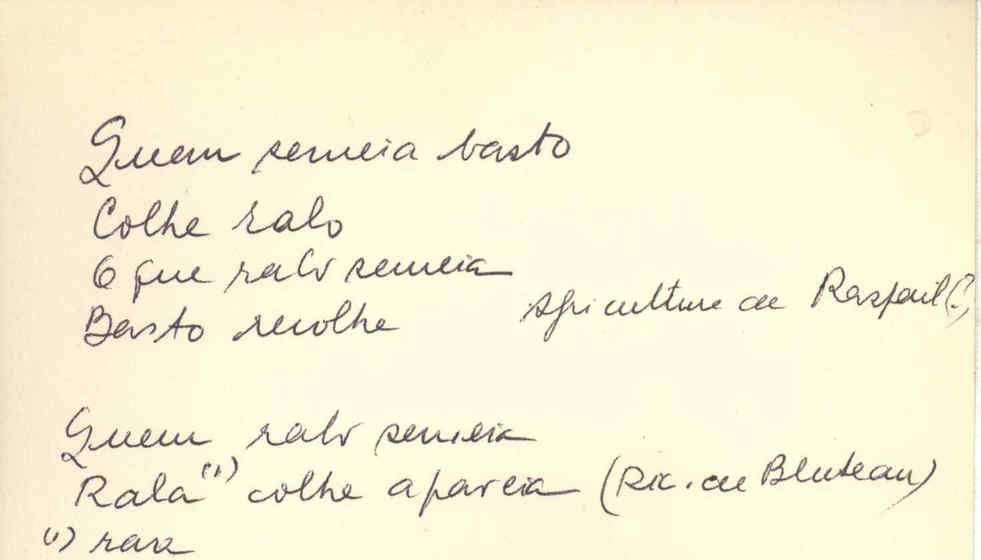 Quem semeia basto
Colhe ralo
O que ralo semeia
Basto recolhe Agriculture de Raspail (?)
Quem ralo semeia
Rala (1) colhe a paveia (Dic. de Bluteau)
(1) rara